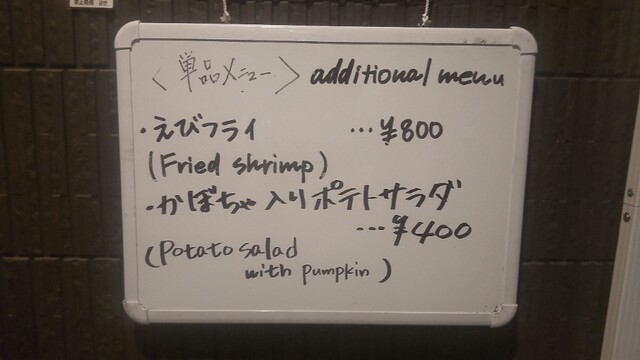 〈単品メニュー〉 additional menu
・えびフライ …¥800
(Fried shrimp)
・かぼちゃ入りポテトサラダ
…¥400
(Potato salad
with pumpkin)